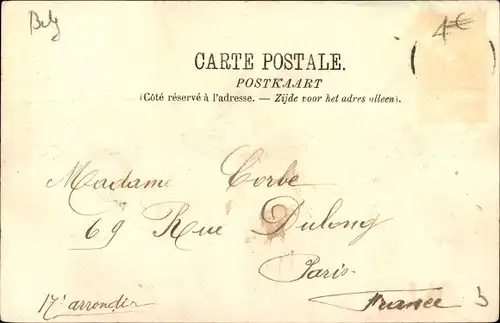 Belg
4€
CARTE POSTALE.
POSTKAART
(Côté réservé à l'adresse. — Zijde voor het adres alleen).
Madame Corbe
69 Rue Dulong
Paris
17e arrondis
France